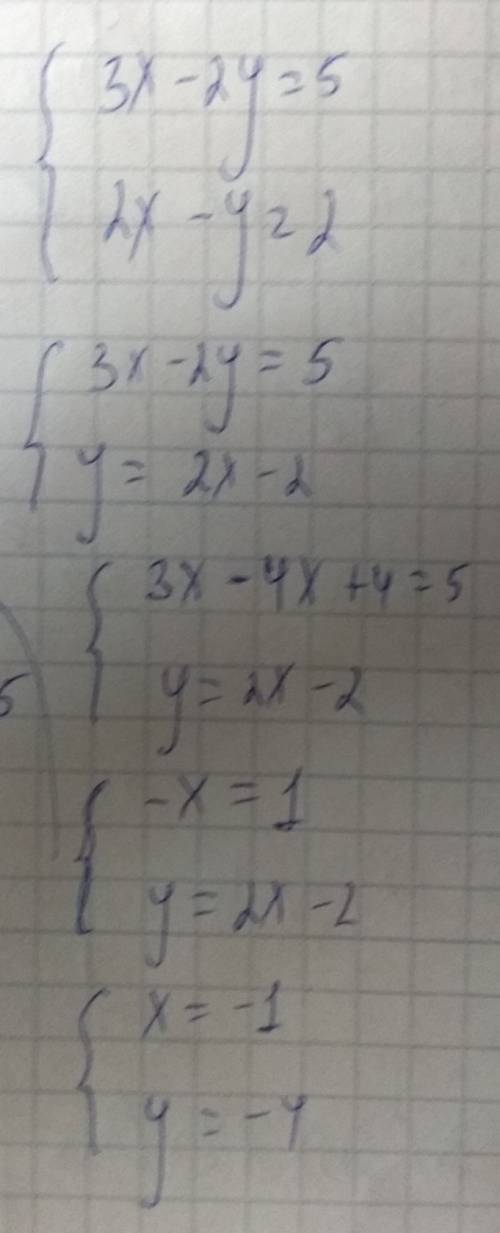 3x - 2y = 5
2x - y = 2
3x - 2y = 5
y = 2x - 2
3x - 4x + 4 = 5
5
y = 2x - 2
-x = 1
y = 2x - 2
x = -1
y = -4